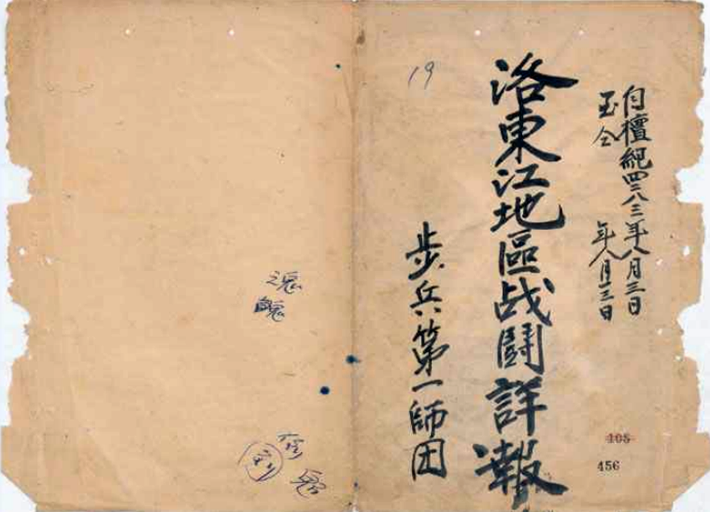 自檀紀四二八三年八月三日
至仝 年八月十三日
洛東江地區战闘詳報
步兵第一師団
19
405
456
魂